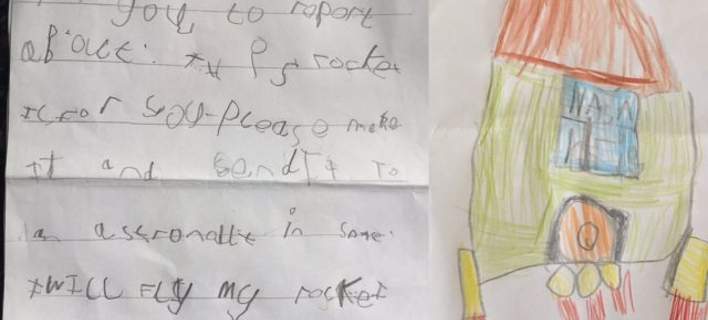 you, to roport
about. 
rocket
is for you-please make
it and send it to
an astronatte in some.
I WILL FLY my rocket